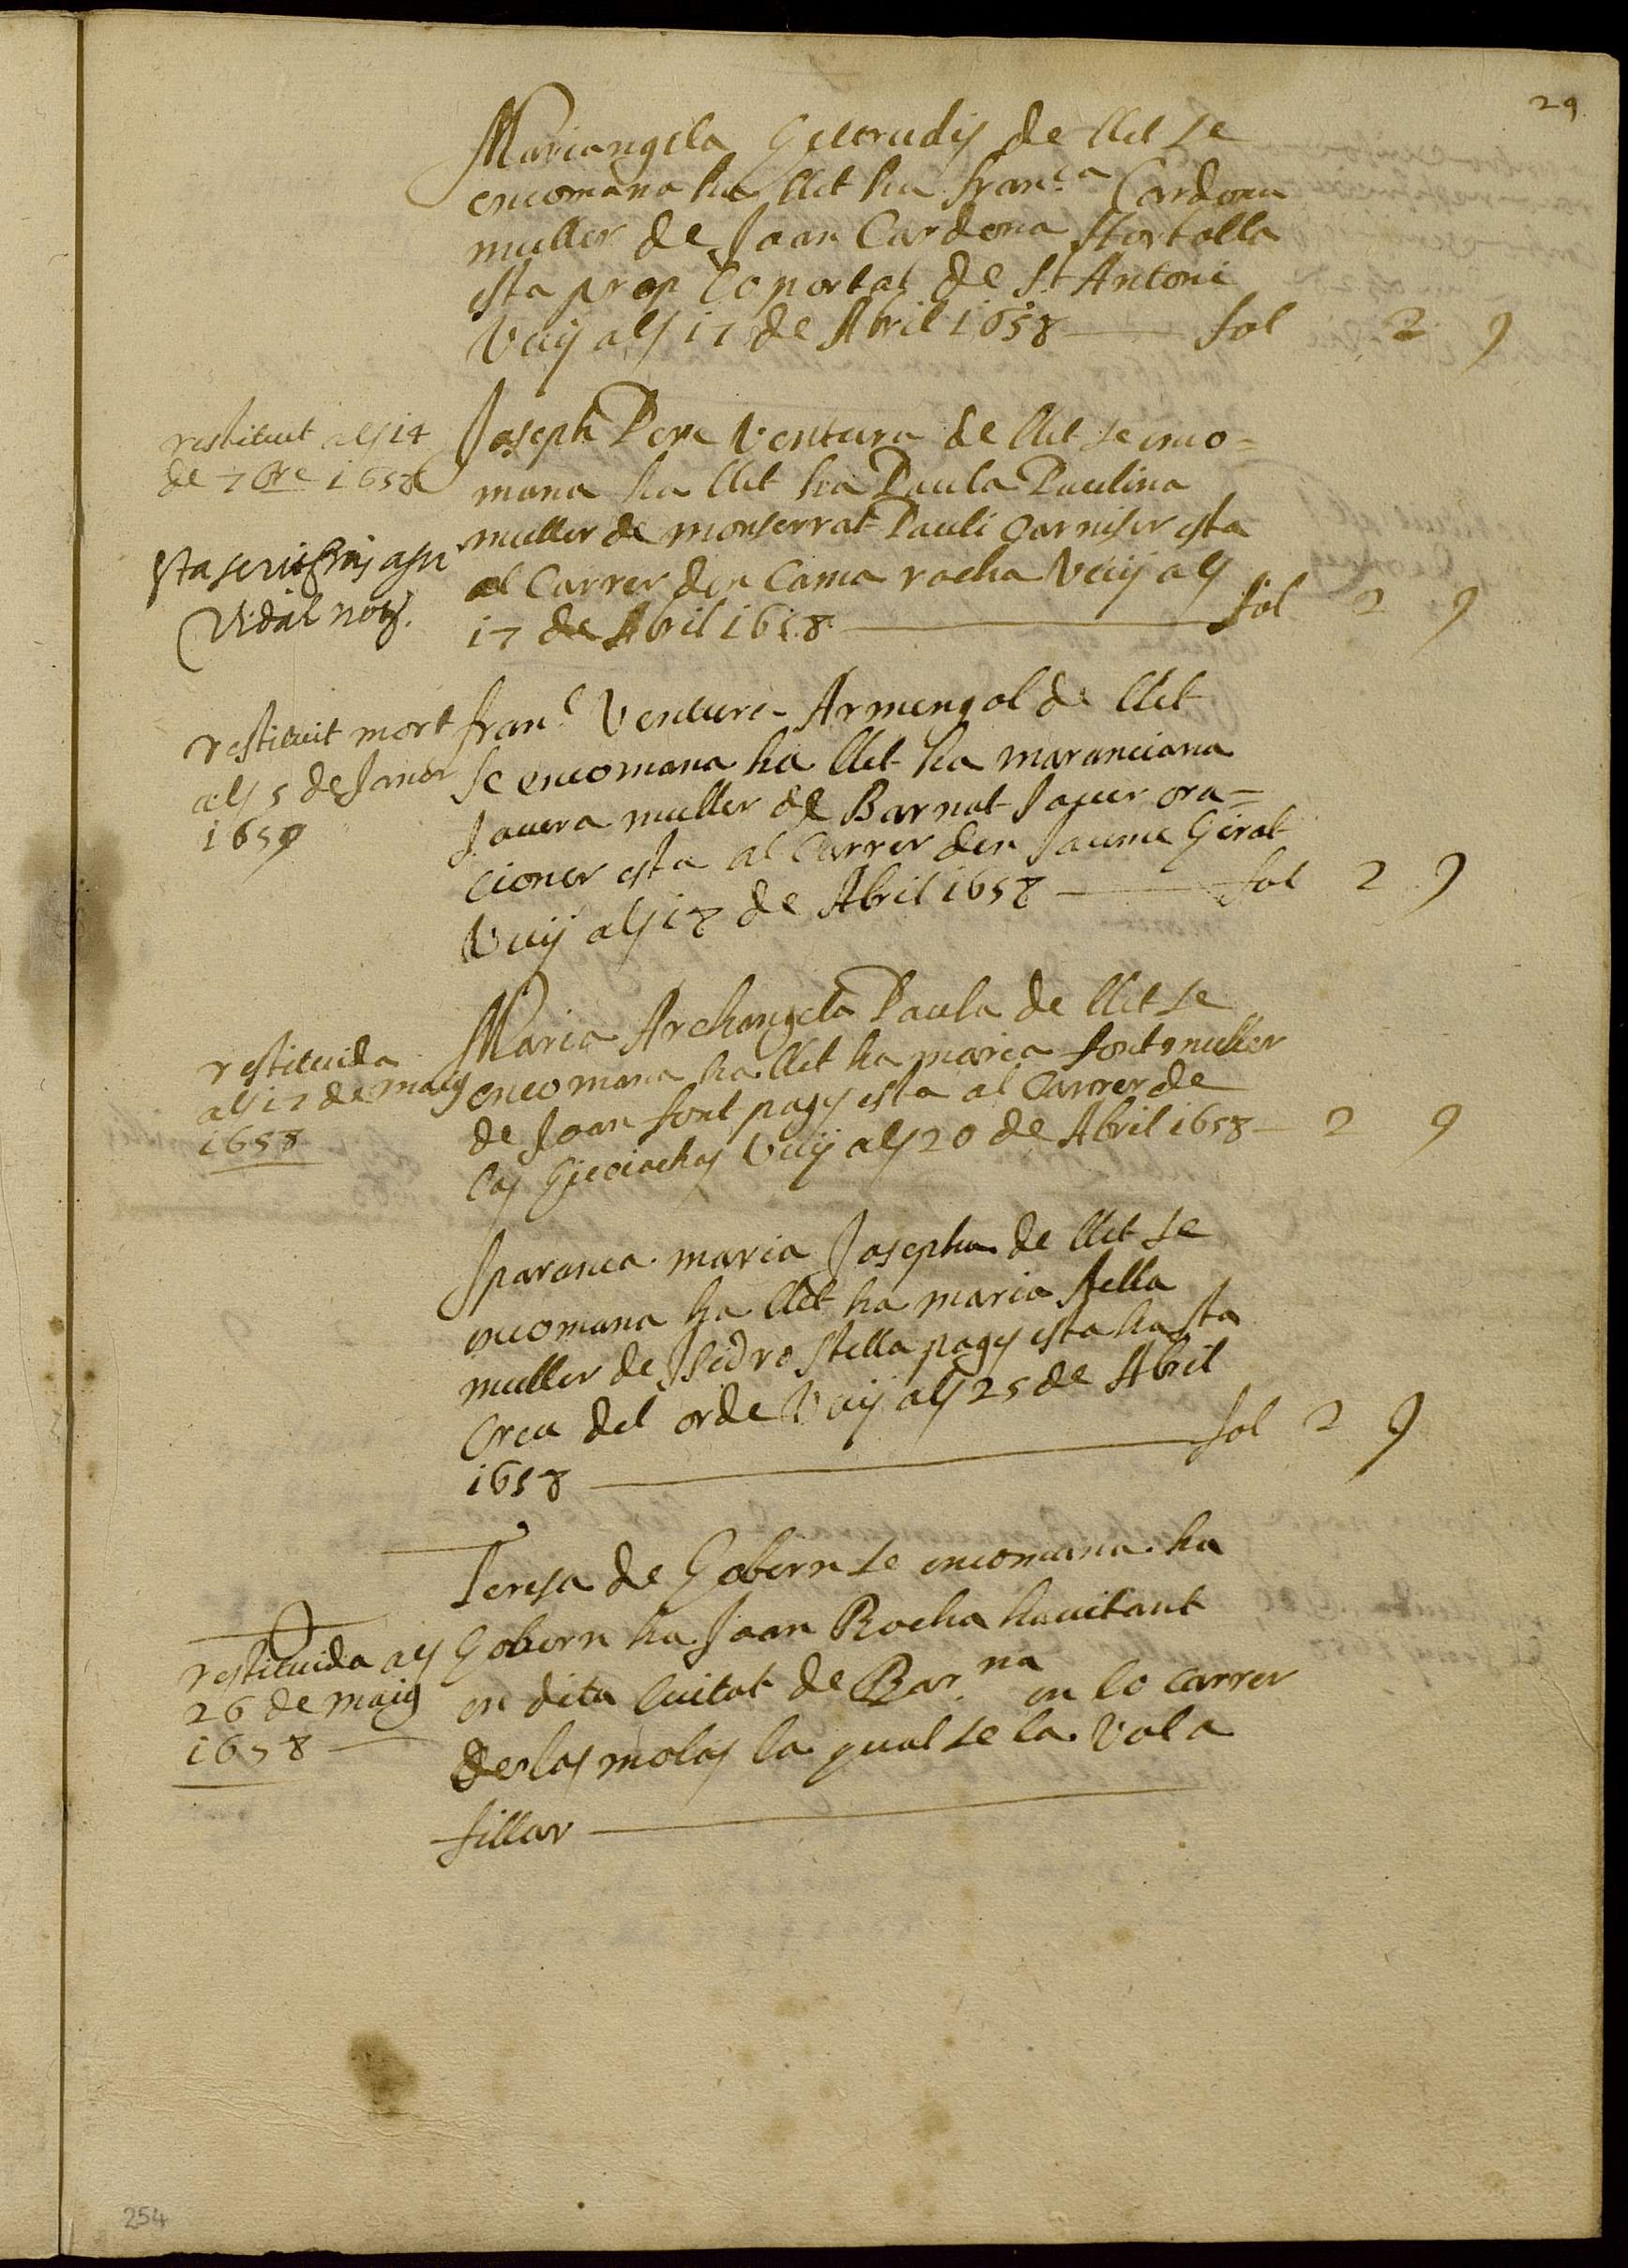 29
Mariangela Geltrudis de llet se
encomana ha llet ha fran.ca Cardona
muller de Joan Cardona Hortolla
esta prop lo portal de St Antoni
Vuy als 17 de Abril 1658 fol 2 9
restituit als 14
de 7bre 1658
esta scrit
Vidal not.
Joseph Pere Ventura de llet se enco=
mana ha llet ha Paula Paulina
muller de monserrat Pauli Carniser esta
al Carrer den Cama rocha Vuy als
17 de Abril 1658 fol 2 9
restituit mort
als 5 de Janer
1659
fran.c Ventura Armengol de llet
se encomana ha llet ha maranciana
Jauera muller de Barnat Jauer ora=
cioner esta al Carrer den Jaume Girat
Vuy als 18 de Abril 1658 fol 2 9
restituida
als 17 de maig
1658
Maria Archangela Paula de llet se
encomana ha llet ha maria font muller
de Joan font pages esta al Carrer de
las Vuy als 20 de Abril 1658 2 9
Sparanca maria Josepha de llet se
encomana ha llet ha maria stella
muller de Isidro stella pages esta ha sta
Crea del orde Vuy als 25 de Abril
1658 fol 2 9
restituida als
26 de maig
1658
Teresa de Gobern se encomana ha
Gobern ha Joan Rocha hauitant
en dita Ciutat de Bar.na en lo carrer
de las molas la qual se la vol a
fillar
254